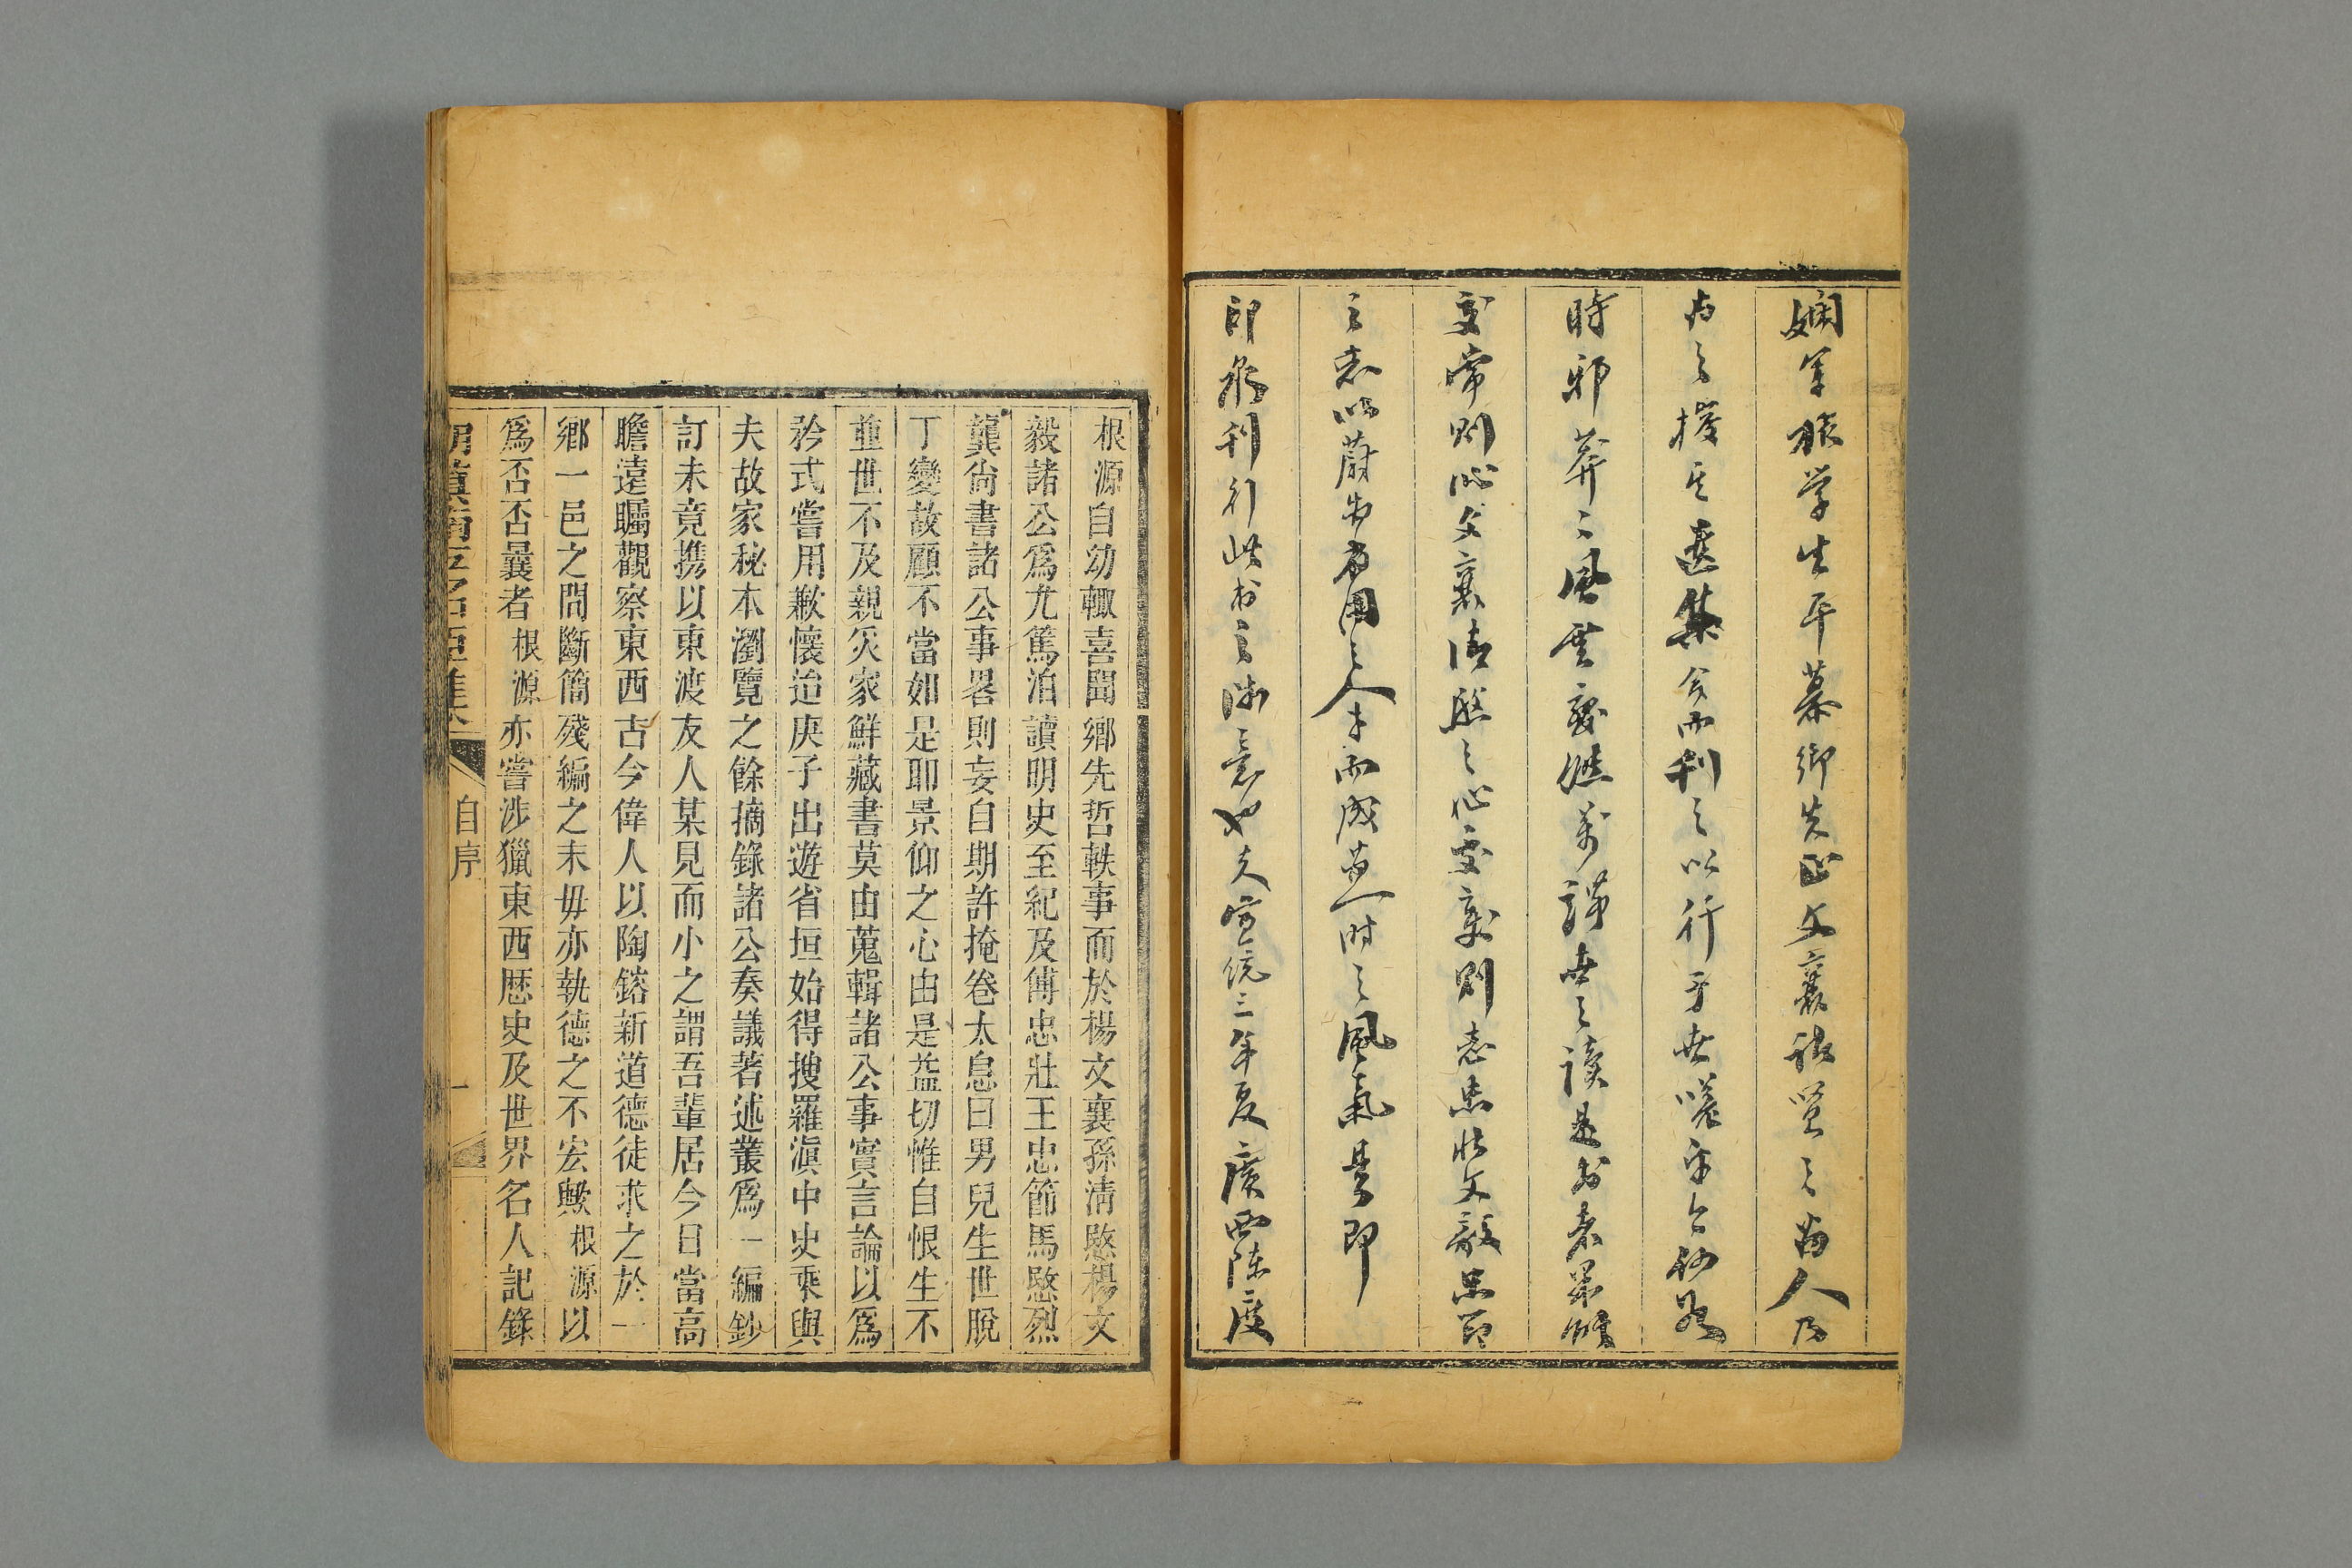 嫻軍旅学生平慕鄉先正文襄諸賢之為人乃
內之搜其遺集彙而刊之以行于世嗟乎今何
時耶莽莽風雲
變常則以文襄清愍之心處變則志忠壯文毅忠節
之志以蔚為有用之人才而成為一時之風氣是即
印泉刊行此书之微意也夫宣統三年夏广西陈度
根源自幼輒喜聞鄉先哲軼事而於楊文襄孫清愍楊文
毅諸公爲尤篤洎讀明史至紀及傅忠壯王忠節馬愍烈
龔尙書諸公事畧則妄自期許掩卷太息曰男兒生世脫
丁變故顧不當如是耶景仰之心由是益切惟自恨生不
並世不及親炙家鮮藏書莫由蒐輯諸公事實言論以爲
矜式嘗用歉懷迨庚子出遊省垣始得搜羅滇中史乘與
夫故家秘本瀏覽之餘摘錄諸公奏議著述叢爲一編鈔
訂未竟携以東渡友人某見而小之謂吾輩居今日當高
瞻遠矚觀察東西古今偉人以陶鎔新道德徒求之於一
鄉一邑之間斷簡殘編之末毋亦執德之不宏歟根源以
爲否否曩者根源亦嘗涉獵東西歷史及世界名人記錄
自序
一